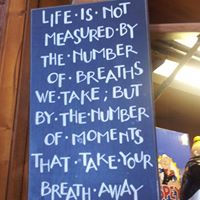 LIFE·IS·NOT
MEASURED·BY
THE·NUMBER
OF·BREATHS
WE·TAKE; BUT
BY·THE·NUMBER
OF·MOMENTS
THAT·TAKE·YOUR
BREATH·AWAY